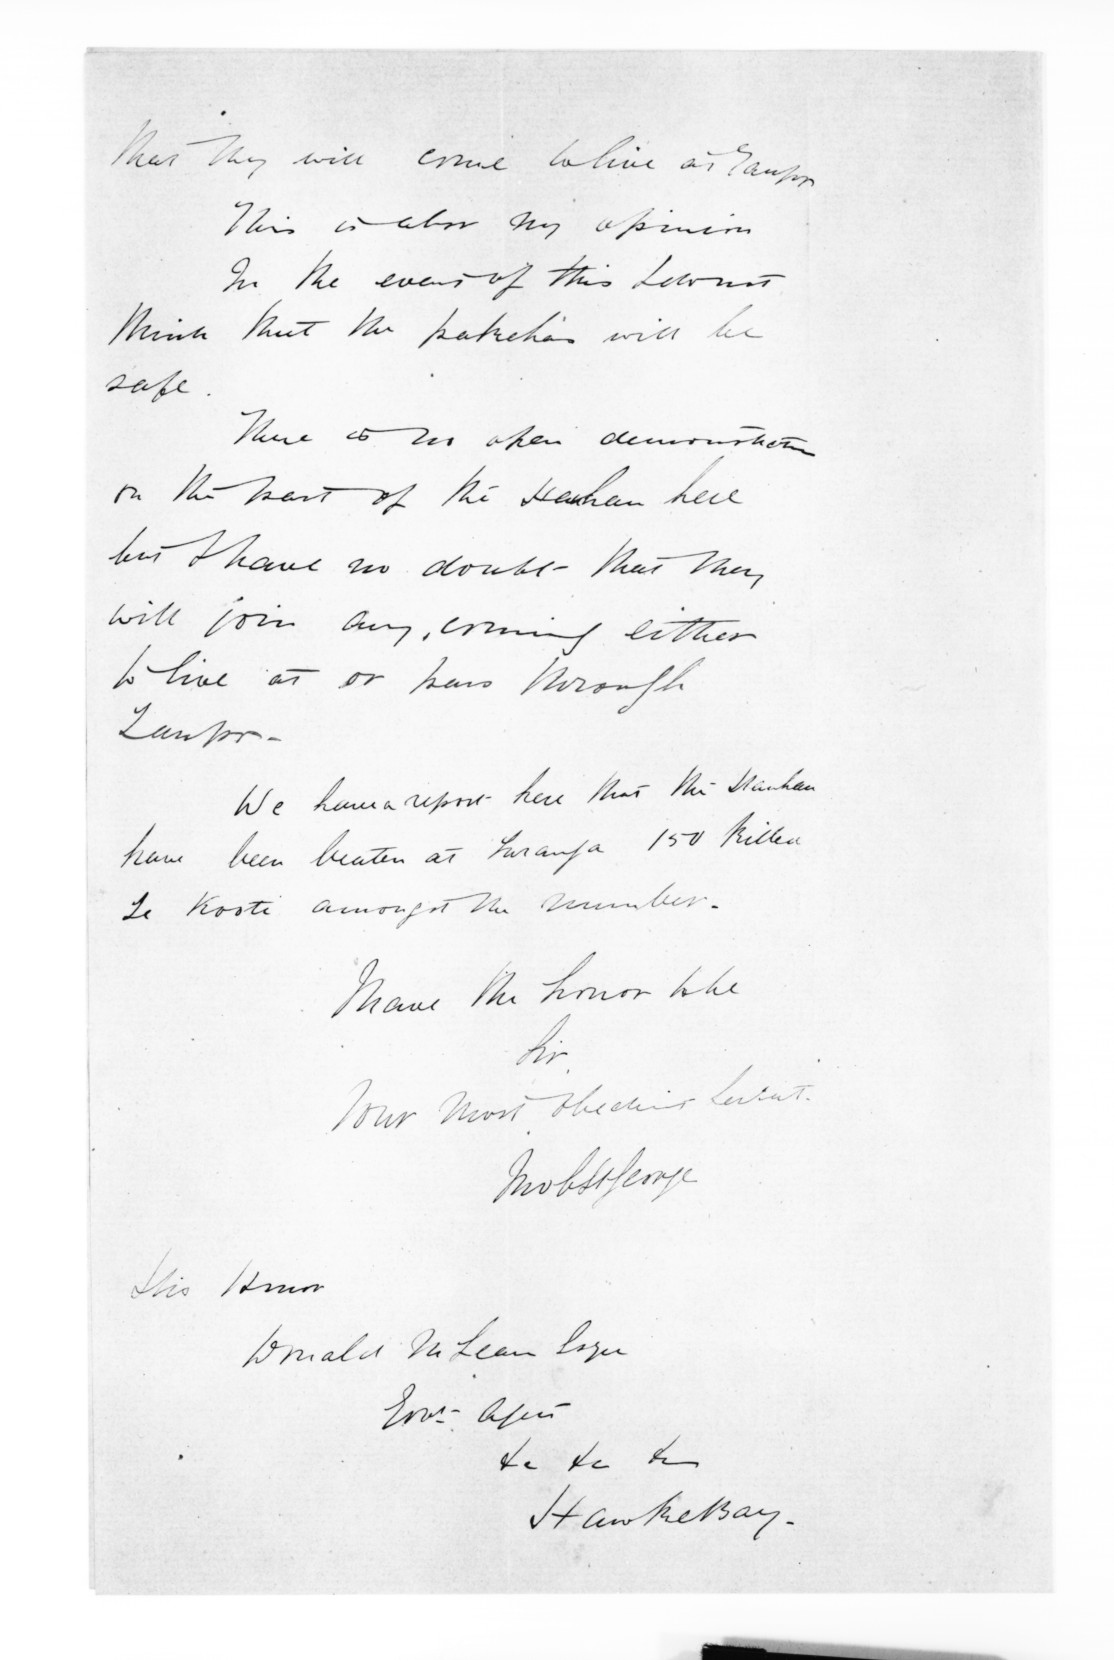 that they will come to live at Taupo
This is also my opinion
In the event of this I do not
think that the pakehas will be
safe.
There is no open demonstration
on the part of the Hauhau here
but I have no doubt that they
will join any, coming either
to live at or pass through
Taupo -
We have a report here that the Hauhau
have been beaten at Turanga 150 killed
Te Kooti amongst the number -
I have the honor to be
Sir
Your most obedient Servt.
Jno C St George
His Honor
Donald McLean Esqre
Govt Agent
&c &c &c
Hawke Bay -